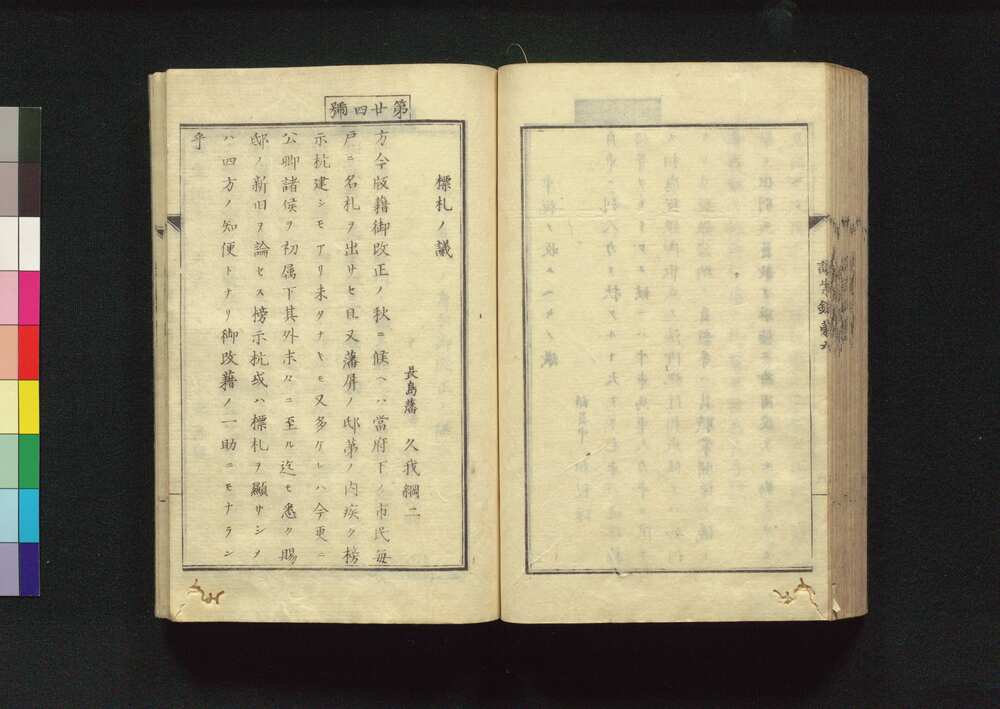 第廿四號
標札ノ議
長島藩 久我綱二
方今版籍御改正ノ秋ニ候ヘハ當府下ノ市民毎
戸ニ名札ヲ出サセ且又藩屏ノ邸第ノ内疾ク榜
示杭建シモアリ未タナキモ又多ケレハ今更ニ
公卿諸侯ヲ初属下其外末々ニ至ル迄モ悉ク賜
邸ノ新旧ヲ論セス榜示杭或ハ標札ヲ顯サシメ
ハ四方ノ知便トナリ御改籍ノ一助ニモナラン
乎